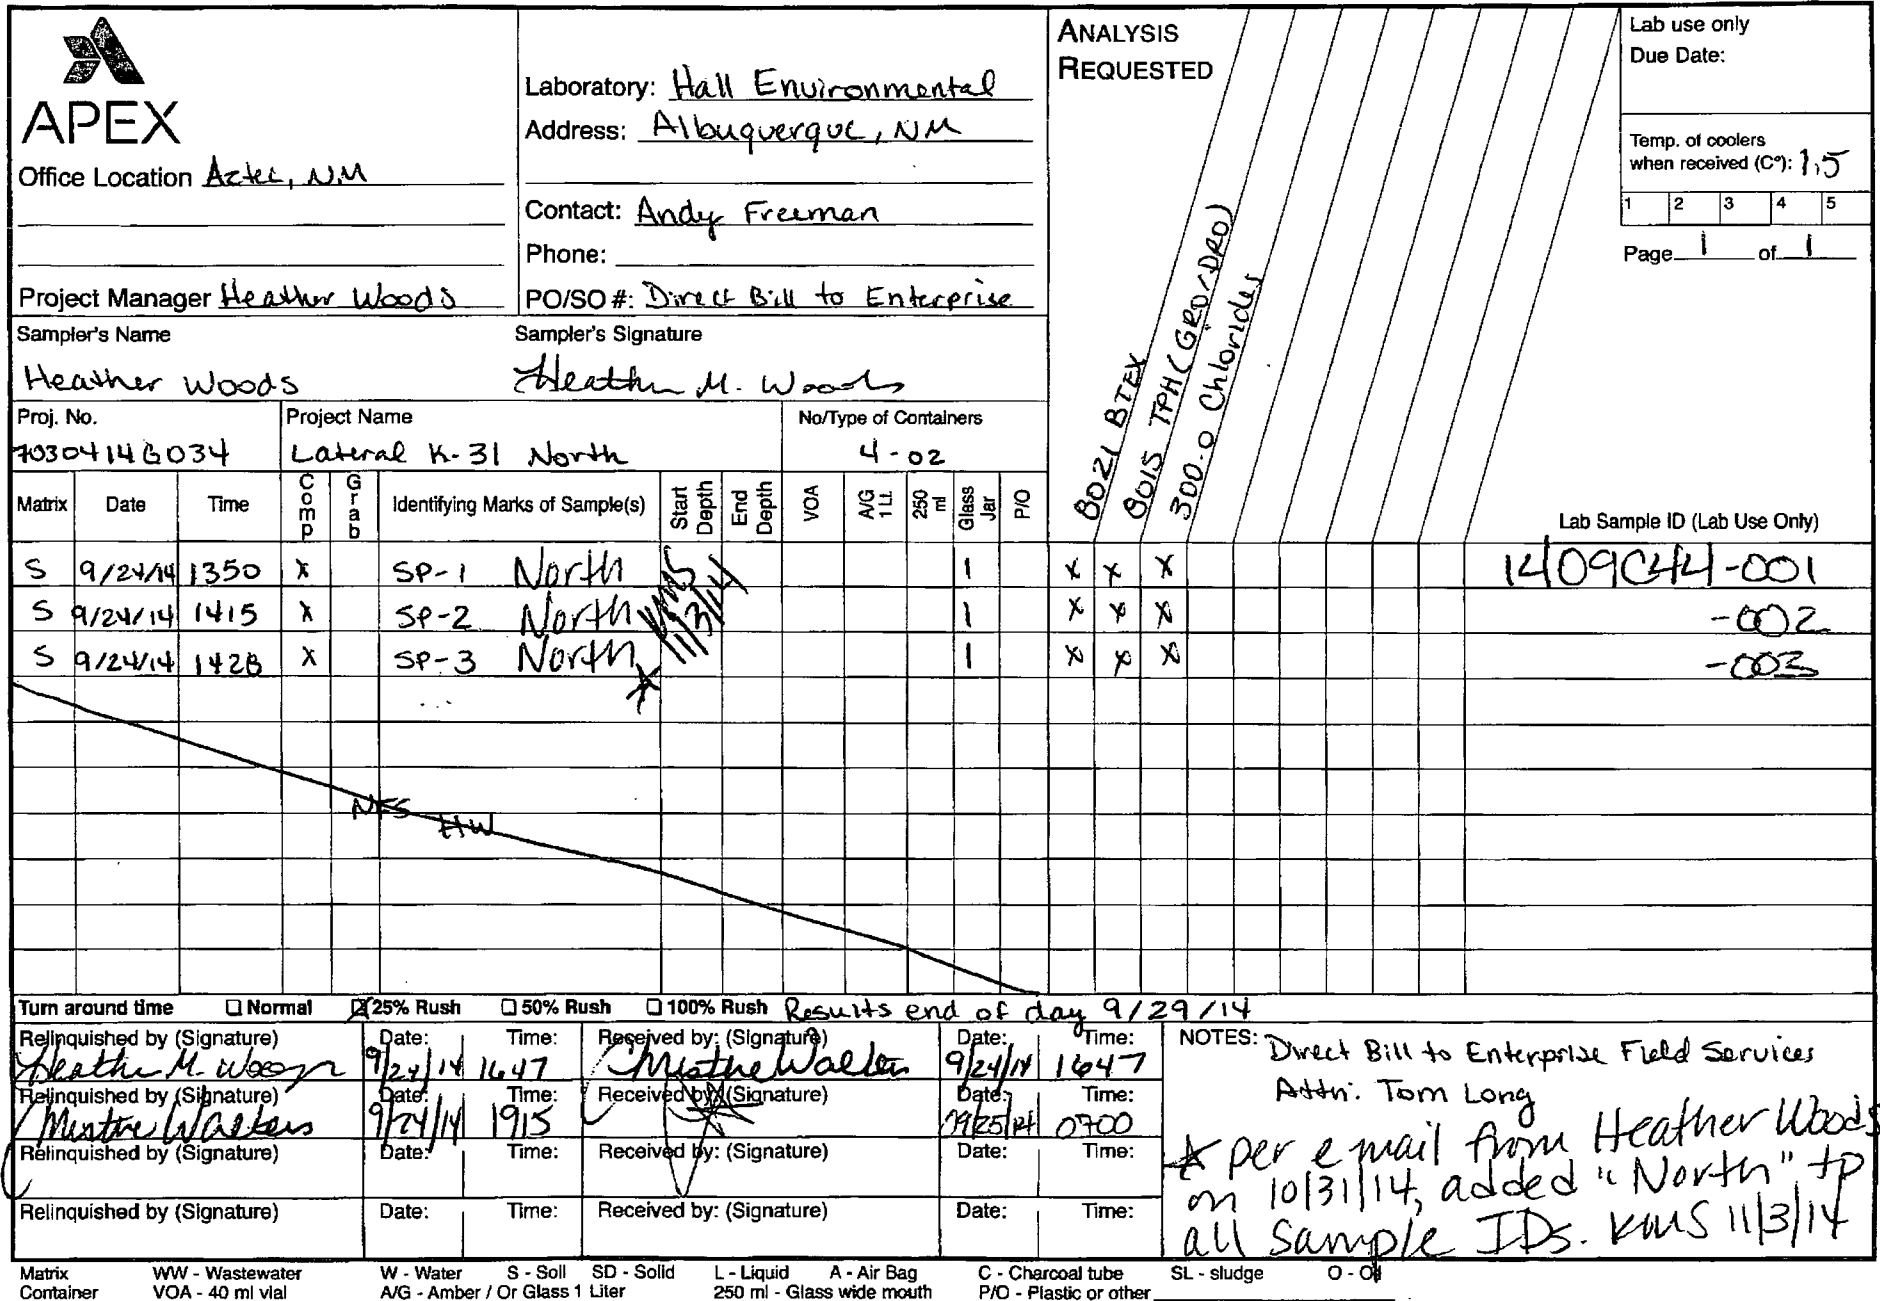 APEX
Office Location Aztec, NM
Project Manager Heather Woods
Laboratory: Hall Environmental
Address: Albuquerque, NM
Contact: Andy Freeman
Phone:
PO/SO #: Direct Bill to Enterprise
ANALYSIS
REQUESTED
8021 BTEX
8015 TPH (GRO/DRO)
300.0 Chlorides
Lab use only
Due Date:
Temp. of coolers
when received (C°): 1.5
1 2 3 4 5
Page 1 of 1
Sampler's Name Sampler's Signature
Heather Woods Heather M. Woods
Proj. No. Project Name No/Type of Containers
7030414G034 Lateral K-31 North 4-02
Matrix Date Time Comp Grab Identifying Marks of Sample(s) Start Depth End Depth VOA A/G 1 Lt. 250 ml Glass Jar P/O Lab Sample ID (Lab Use Only)
S 9/24/14 1350 X SP-1 North 1 X X X 1409C44-001
S 9/24/14 1415 X SP-2 North 1 X X X -002
S 9/24/14 1428 X SP-3 North 1 X X X -003
KMS
11/3/14
NFS HW
Turn around time Normal 25% Rush 50% Rush 100% Rush Results end of day 9/29/14
Relinquished by (Signature) Date: Time: Received by: (Signature) Date: Time:
Heather M. Woods 9/24/14 1647 Christine Walters 9/24/14 1647
Relinquished by (Signature) Date: Time: Received by: (Signature) Date: Time:
Christine Walters 9/24/14 1915 09/25/14 0700
Relinquished by (Signature) Date: Time: Received by: (Signature) Date: Time:
Relinquished by (Signature) Date: Time: Received by: (Signature) Date: Time:
NOTES: Direct Bill to Enterprise Field Services
Attn: Tom Long
* per email from Heather Woods
on 10/31/14, added "North" to
all Sample IDs. KMS 11/3/14
Matrix WW - Wastewater W - Water S - Soil SD - Solid L - Liquid A - Air Bag C - Charcoal tube SL - sludge O - Oil
Container VOA - 40 ml vial A/G - Amber / Or Glass 1 Liter 250 ml - Glass wide mouth P/O - Plastic or other